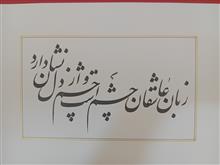 زبان عاشقان چشم است و چشم از دل نشان دارد